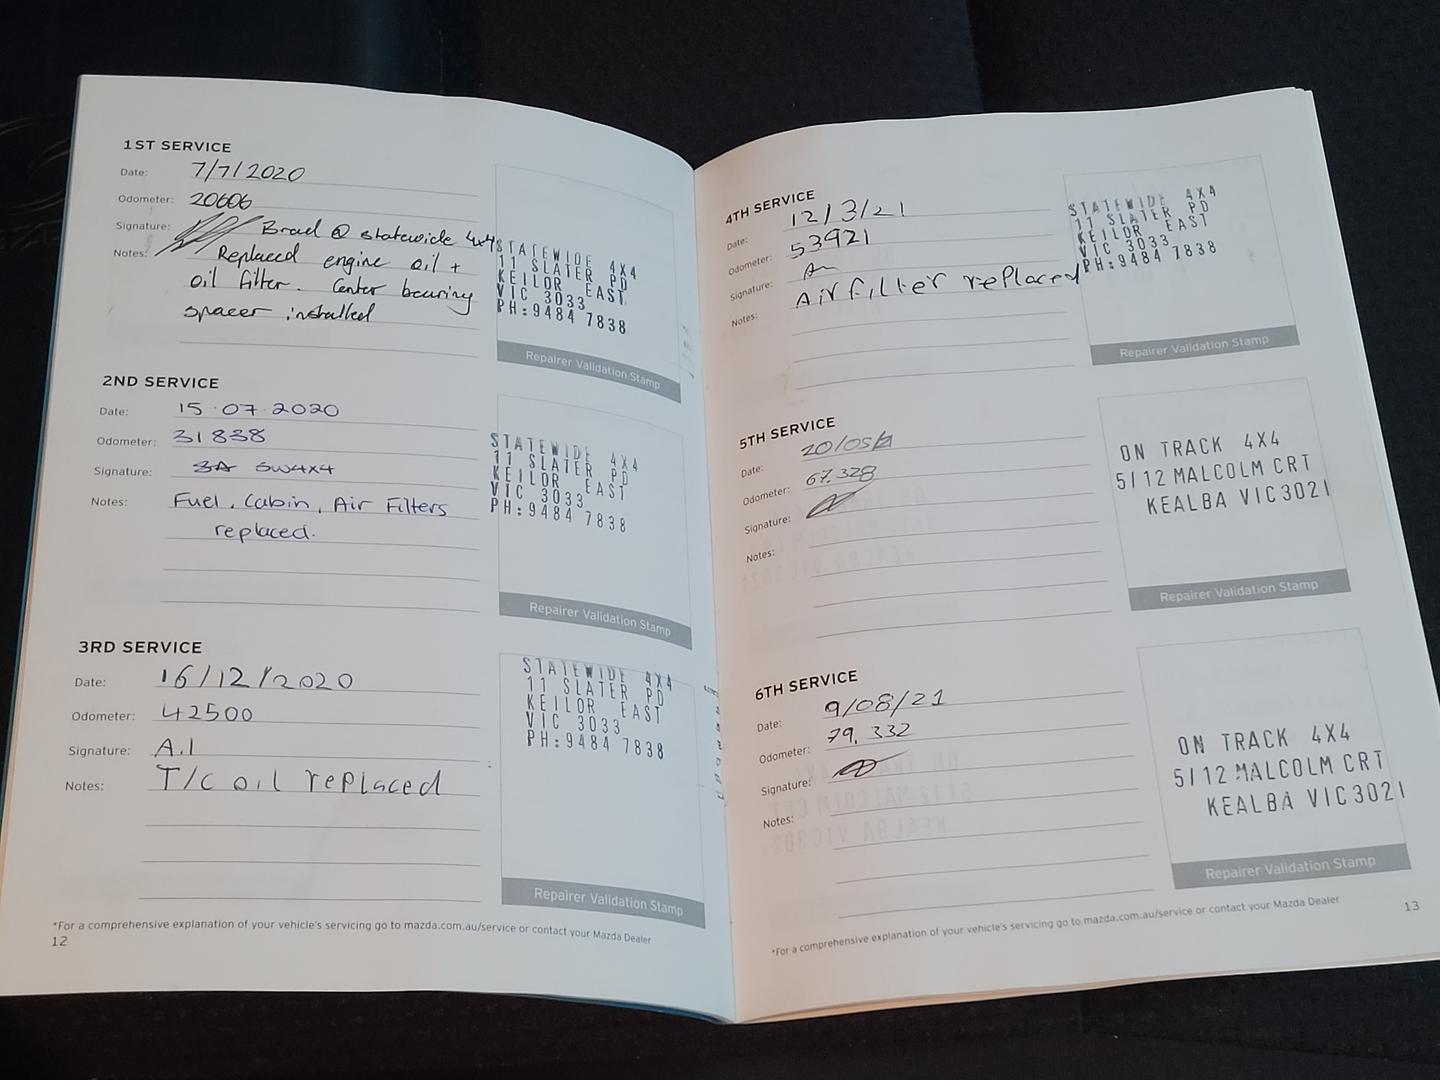 1ST SERVICE
Date: 7/7/2020
Odometer: 20606
Signature: Brad @ statewide 4x4
Notes: Replaced engine oil +
oil filter. Center bearing
spacer installed
STATEWIDE 4X4
11 SLATER PD
KEILOR EAST
VIC 3033
PH:9484 7838
Repairer Validation Stamp
2ND SERVICE
Date: 15.07.2020
Odometer: 31838
Signature: SW4x4
Notes: Fuel, Cabin, Air Filters
replaced.
STATEWIDE 4X4
11 SLATER PD
KEILOR EAST
VIC 3033
PH:9484 7838
Repairer Validation Stamp
3RD SERVICE
Date: 16/12/2020
Odometer: 42500
Signature: A.I
Notes: T/C oil replaced
STATEWIDE 4X4
11 SLATER PD
KEILOR EAST
VIC 3033
PH:9484 7838
Repairer Validation Stamp
*For a comprehensive explanation of your vehicle's servicing go to mazda.com.au/service or contact your Mazda Dealer
12
4TH SERVICE
Date: 12/3/21
Odometer: 53921
Signature:
Notes: Air filter replaced
STATEWIDE 4X4
11 SLATER PD
KEILOR EAST
VIC 3033
PH:9484 7838
Repairer Validation Stamp
5TH SERVICE
Date: 20/05/21
Odometer: 67.328
Signature:
Notes:
ON TRACK 4X4
5/12 MALCOLM CRT
KEALBA VIC 3021
Repairer Validation Stamp
6TH SERVICE
Date: 9/08/21
Odometer: 79,332
Signature:
Notes:
ON TRACK 4X4
5/12 MALCOLM CRT
KEALBA VIC 3021
Repairer Validation Stamp
*For a comprehensive explanation of your vehicle's servicing go to mazda.com.au/service or contact your Mazda Dealer
13